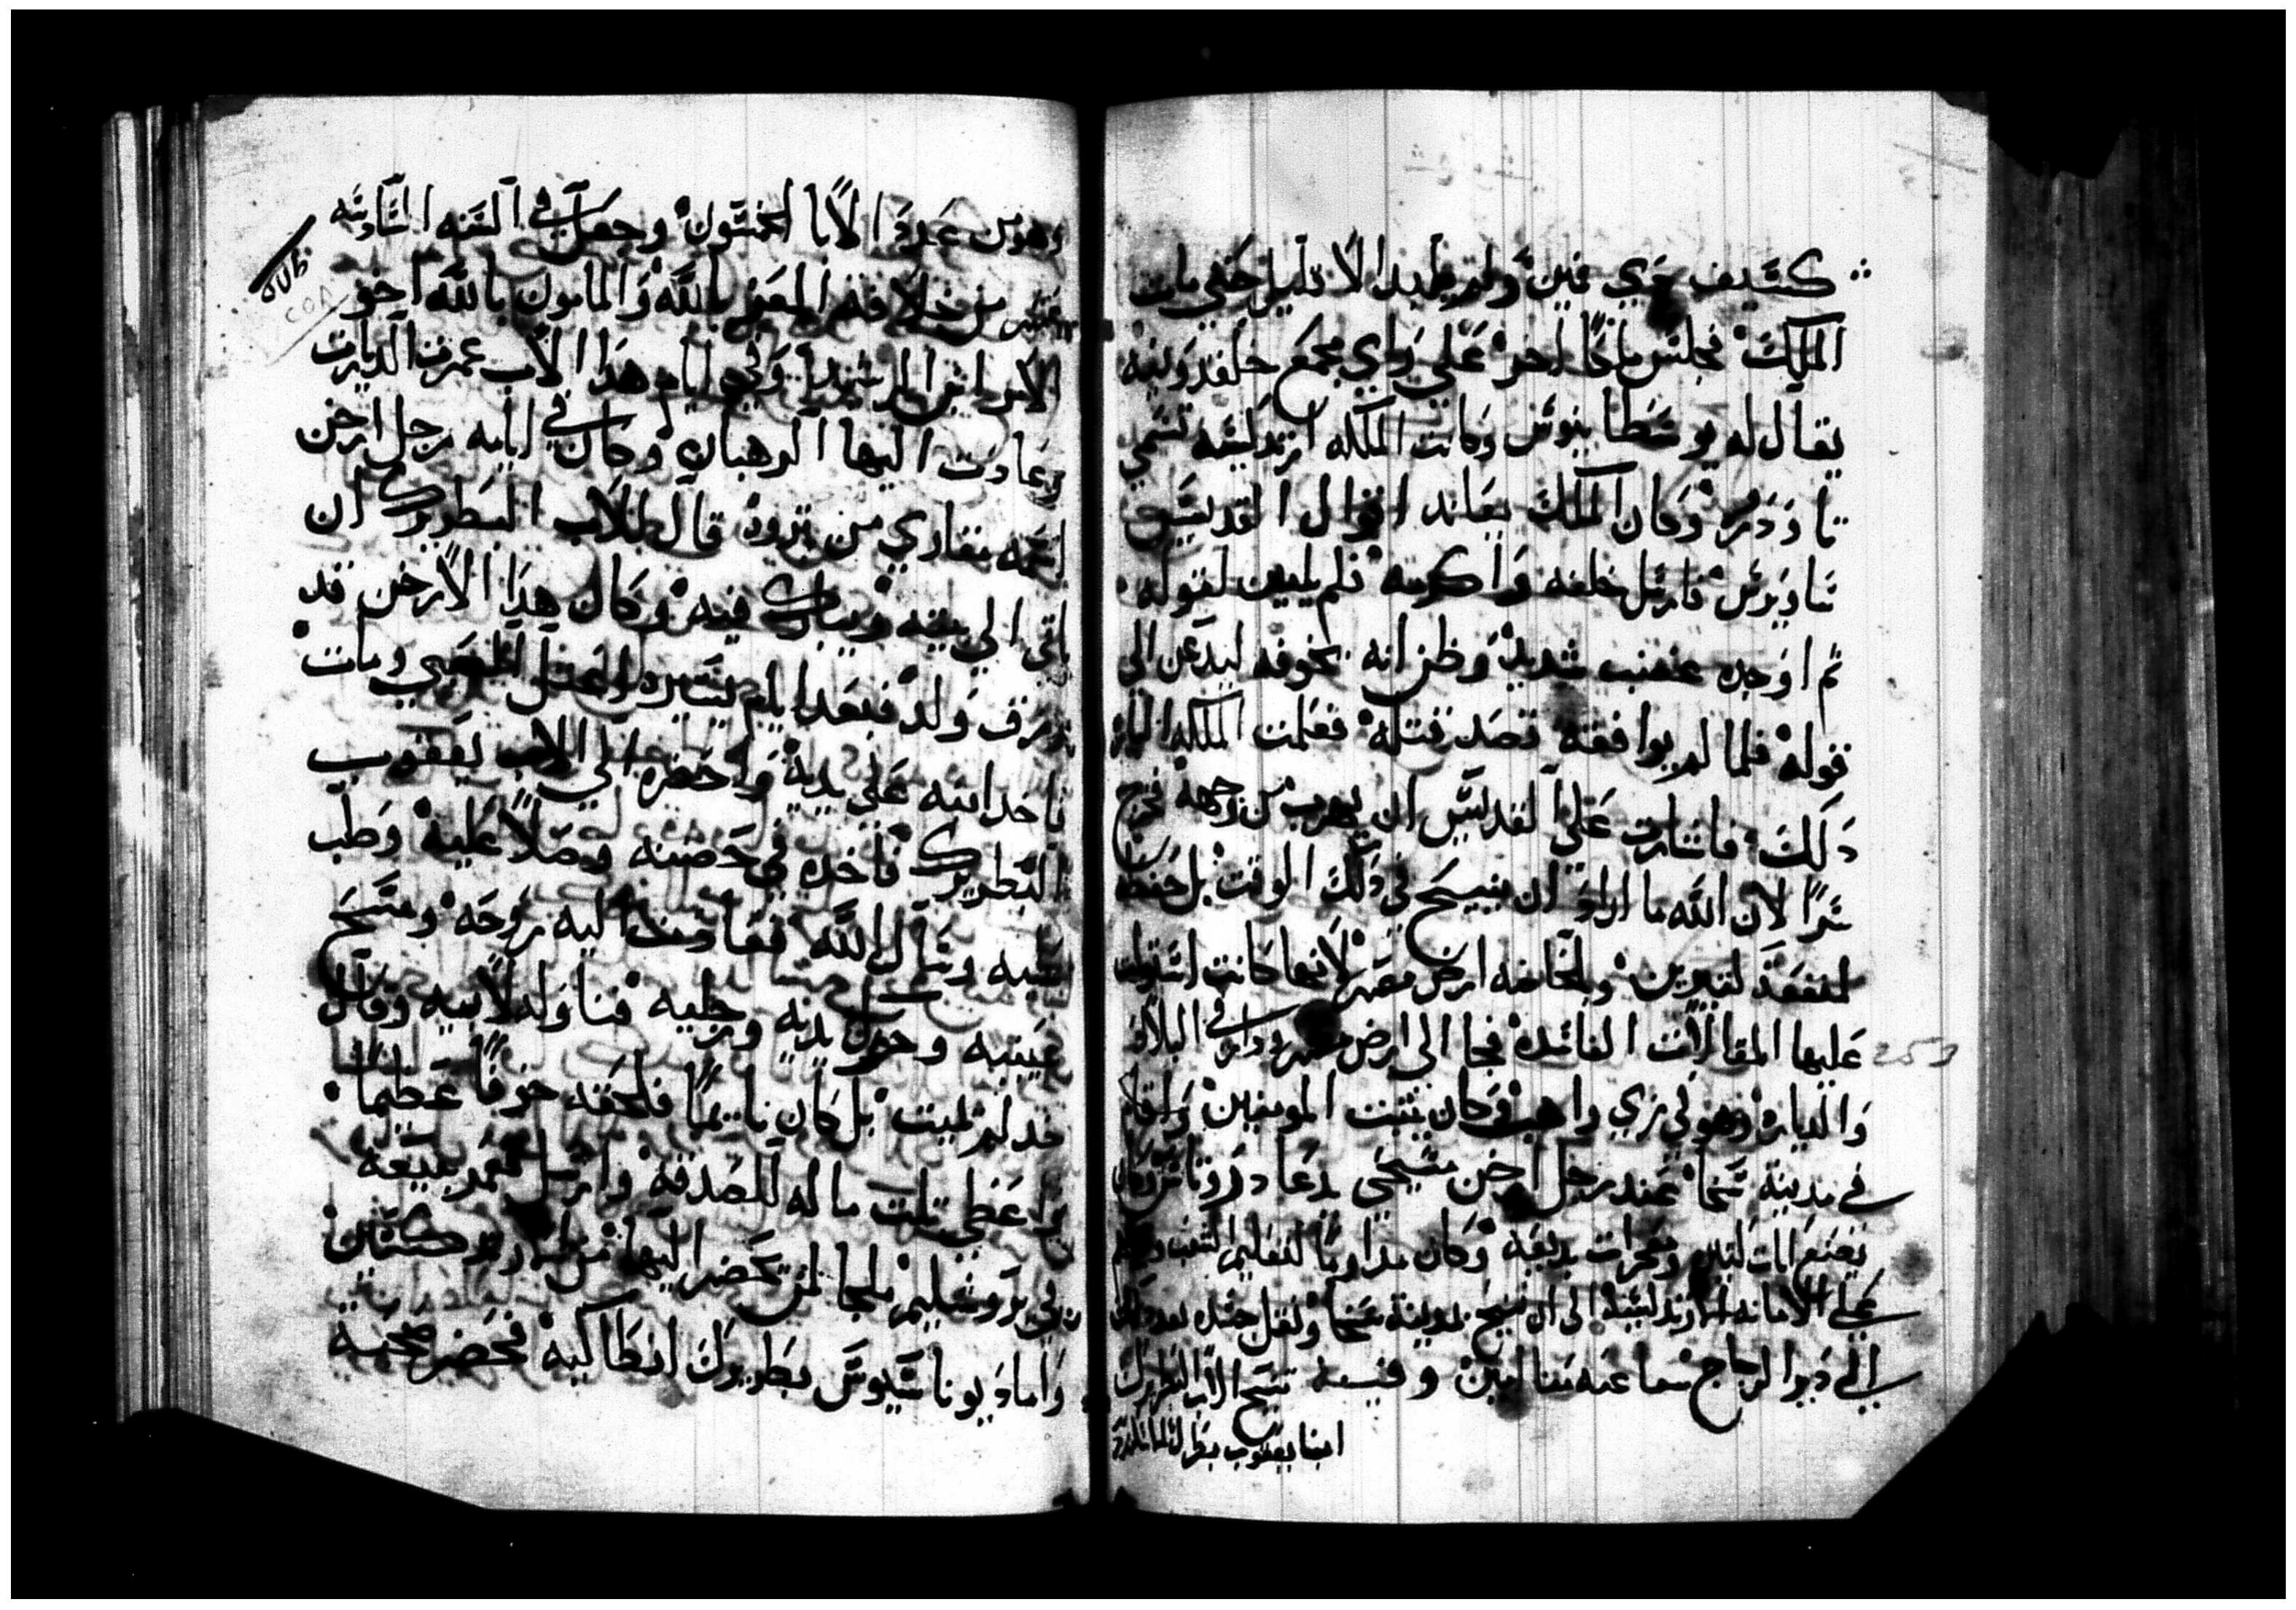 كسيف حي ولم الا قليل حتي مات
الملك فجلس ملكا اخر علي راي مجمع خلقدونيه
يقال له يوسطاينوس وكانت الملكه ارتدكسيه تسمي
تاودره وكان الملك يعاند اقوال القديس
ساويرس فارسل خلفه واكرمه فلم يلين لقوله
ثم اوجده غضب شديد وظن انه يخوفه ليدعن الي
قوله فلما لم يوافقه قصد قتله فعلمت الملكه الباره
دلك فاشارت علي القديس ان يهرب من وجهه فخرج
سرا لان الله ما اراد ان يتنيح في دلك الوقت بل حفظه
لمنفعة لتيرين وبالخاصه ارض مصر لانها كانت استولت
عليها المقالات الفاسده فجا الي ارض مصر ودار في البلاد
253
والدياره وهو في زي راهب وكان يثبت المومنين واقام
في مدينة سخا عند رجل ارخن مسيحي يدعا دوروتاوس وكان
يصنع ايات كتير ومعجزات بديعه وكان مداوما لتعليم الشعب
علي الامانه الارتدكسيه الي ان تنيح بمدينة سخا ونقل جسده بعد دلك
الي دير الزجاج شفاعته معنا امين وفيه تنيح الاب البطريرك
انبا يعقوب
وهو من عدد الابا الخمسون وجعل في السنه السادسه
عشر من خلافة المعتز بالله والمامون بالله اخو
الامراتين الرشيد وفي ايام هدا الاب عمرت الديارات
وعادت اليها الرهبان وكان في ايامه رجل ارخن
اسمه مقاري من نبروه قال للاب البطريرك ان
ياتي الي بيته ويبارك فيه وكان هدا الارخن قد
رزق ولد فبعد ايام يسيره اعتل الصبي ومات
فاخد ابنه علي يديه واحضره الي الاب يعقوب
البطريرك فاخده في حضنه وصلا عليه وصلب
عليه وسال الله فعادت اليه روحه ومسح
عينيه وحرك يديه ورجليه فناوله لابيه وقال
قد لم يميت بل كان نايما فلحقه خوفا عظيما
واعطي تلت ماله للصدقه وارسل عمر بيعة
في يروشليم ملجا لمن يحضر اليها من الارتدكسيين
واما ديوناسيوس بطريرك انطاكيه فحضر صحبة